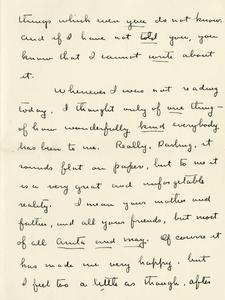 things which even you do not know.
And if I have not told you, you
know that I cannot write about
it.
Whenever I was not reading
today, I thought only of one thing -
of how wonderfully kind everybody
has been to me. Really, Darling, it
sounds flat on paper, but to me it
is a very great and unforgetable
reality. I mean your mother and
father, and all your friends, but most
of all Anita and May. Of course it
has made me very happy, but
I feel too a little as though, after